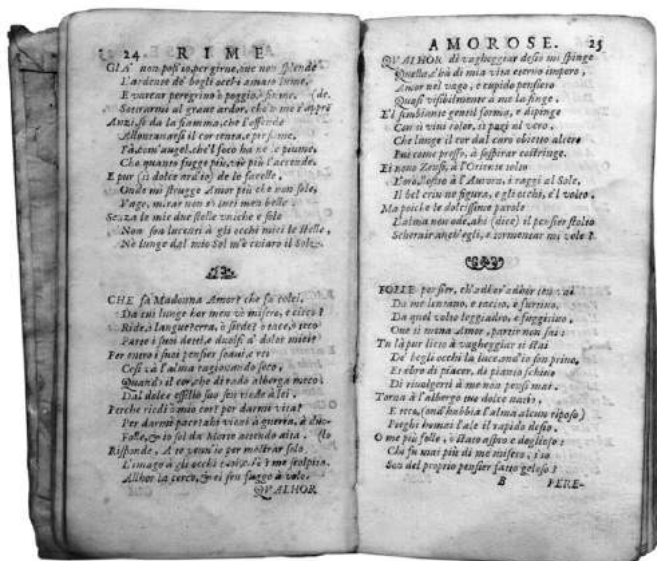 24 RIME
GIA' non poss'io, per girne, oue non splende
L'ardente de' begli occhi amato lume,
E varcar peregrino ò poggio, ò fiume, (de.
Sottrarmi al graue ardor, che'n me s'appré
Anzi, se da la fiamma, che l'offende
Allontanarsi il cor tenta, e presume,
Fà, com' augel, che'l foco ha ne le piume,
Che quanto fugge più, vie più l'accende.
E pur (sì dolce ardo) de le fauelle,
Onde mi strugge Amor più che non sole,
Vago, mirar non sò mei men belle.
Senza le mie due stelle vniche e sole
Non son lucenti à gli occhi miei le stelle,
Nè lunge dal mio Sol m'è chiaro il Sole.
CHE fà Madonna Amor? che fa colei,
Da cui lunge hor men vò misero, e cieco?
Ride, ò langue? erra, ò siede? ò tace, ò seco
Parte i suoi detti, e duolsi a' dolor miei?
Per entro i suoi pensier soaui, e rei
Così và l'alma ragionando seco,
Quando il cor, che di rado alberga meco,
Dal dolce essilio suo sen riede a lei.
Perche riedi ò mio cor? per darmi vita?
Per darmi pace? ahi vieni à guerra, à duolo
Folle, & io sol da Morte attendo aita. (lo
Risponde, A te venn'io per mostrar solo
L'imago à gli occhi tuoi, ch'è me scolpita.
Allhor la cerco, & ei sen fugge à volo.
QVALHOR
AMOROSE. 25
QVALHOR di vagheggiar desio mi spinge
Quella c'hà di mia vita eterno impero,
Amor nel vago, e cupido pensiero
Quasi visibilmente a me la finge.
E'l sembiante gentil forma, e dipinge
Con sì viui color, sì pari al vero,
Che lunge il cor dal caro obietto altero
Pur come presso, à sospirar costringe.
Ei nouo Zeusi, à l'Oriente tolto
L'oro, l'ostro à l'Aurora, i raggi al Sole,
Il bel crin ne figura, e gli occhi, e'l volto.
Ma poiche le dolcissime parole
L'alma non ode, ahi (dice) il pensier stolto
Schernir anch'egli, e tormentar mi vole?
FOLLE pensier, ch'adhor'adhor ten vai
Da me lontano, e taccio, e furtiuo,
Da quel volto leggiadro, e fuggitiuo,
Oue ti mena Amor, partir non sai:
Tu là pur lieto à vagheggiar ti stai
De' begli occhi la luce, ond'io son priuo,
Et ebro di piacer, di pianto schiuo
Di riuolgerti à me non pensi mai.
Torna à l'albergo tuo dolce natio,
E teco, (ond'habbia l'alma alcun riposo)
Porghi homai l'ale il rapido desio.
O me più folle, ò stato aspro e doglioso:
Chi fu mai più di me misero, s'io
Son del proprio pensier fatto geloso?
B PERE-